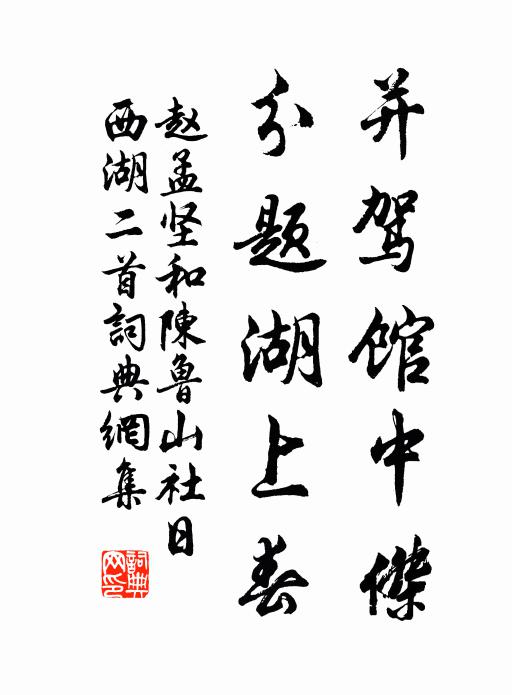 并驾馆中傑
分题湖上春
赵孟坚和陳魯山社日
西湖二首詞典網集
詞典网印